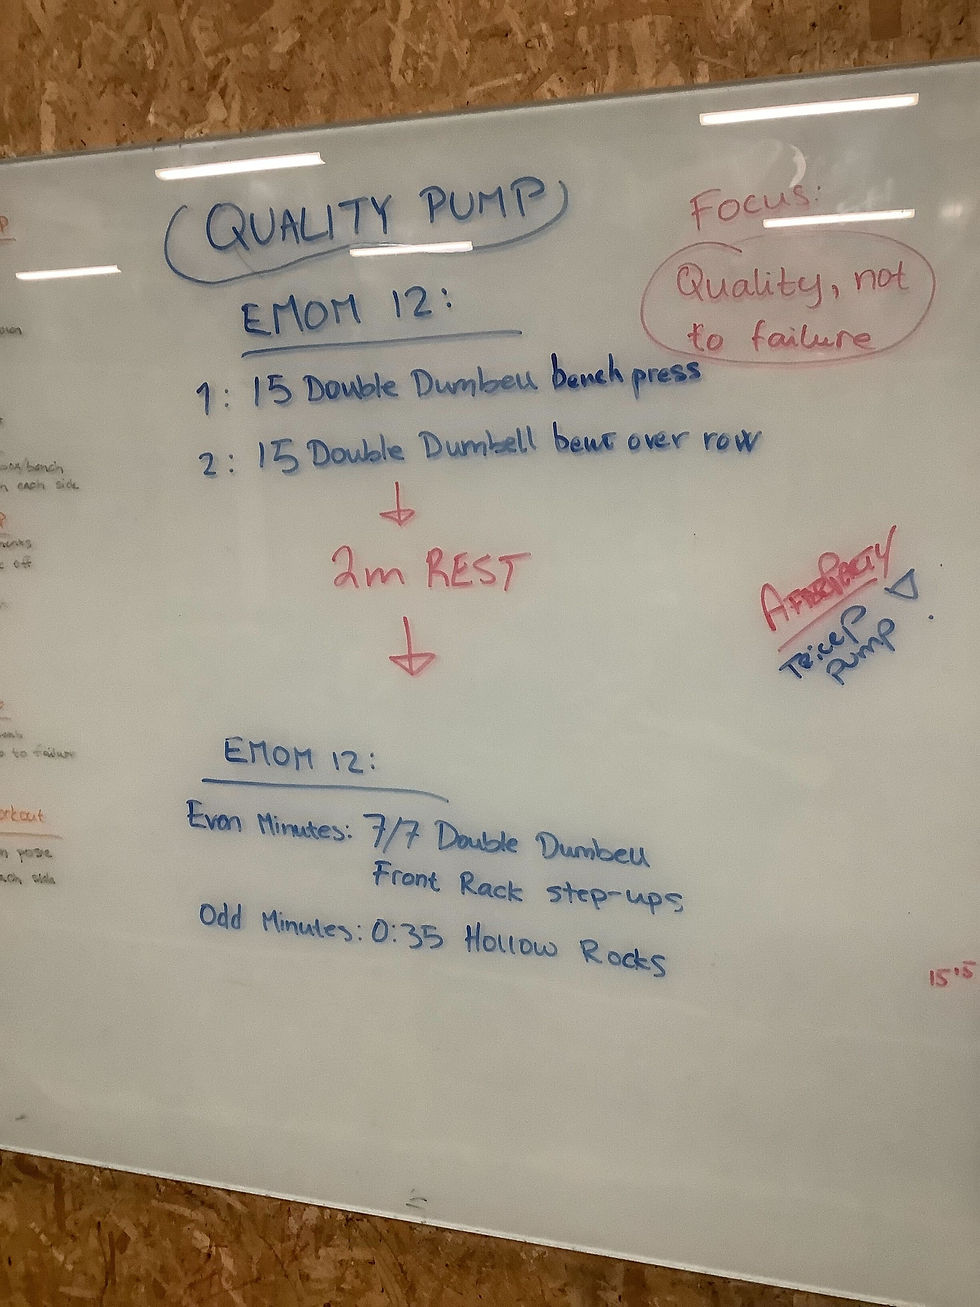 QUALITY PUMP
Focus:
Quality, not
to failure
EMOM 12:
1: 15 Double Dumbell bench press
2: 15 Double Dumbell bent over row
2m REST
AFTERPARTY
Tricep
Pump
EMOM 12:
Even Minutes: 7/7 Double Dumbell
Front Rack step-ups
Odd Minutes: 0:35 Hollow Rocks
bench
each side
off
to failure
pose
side